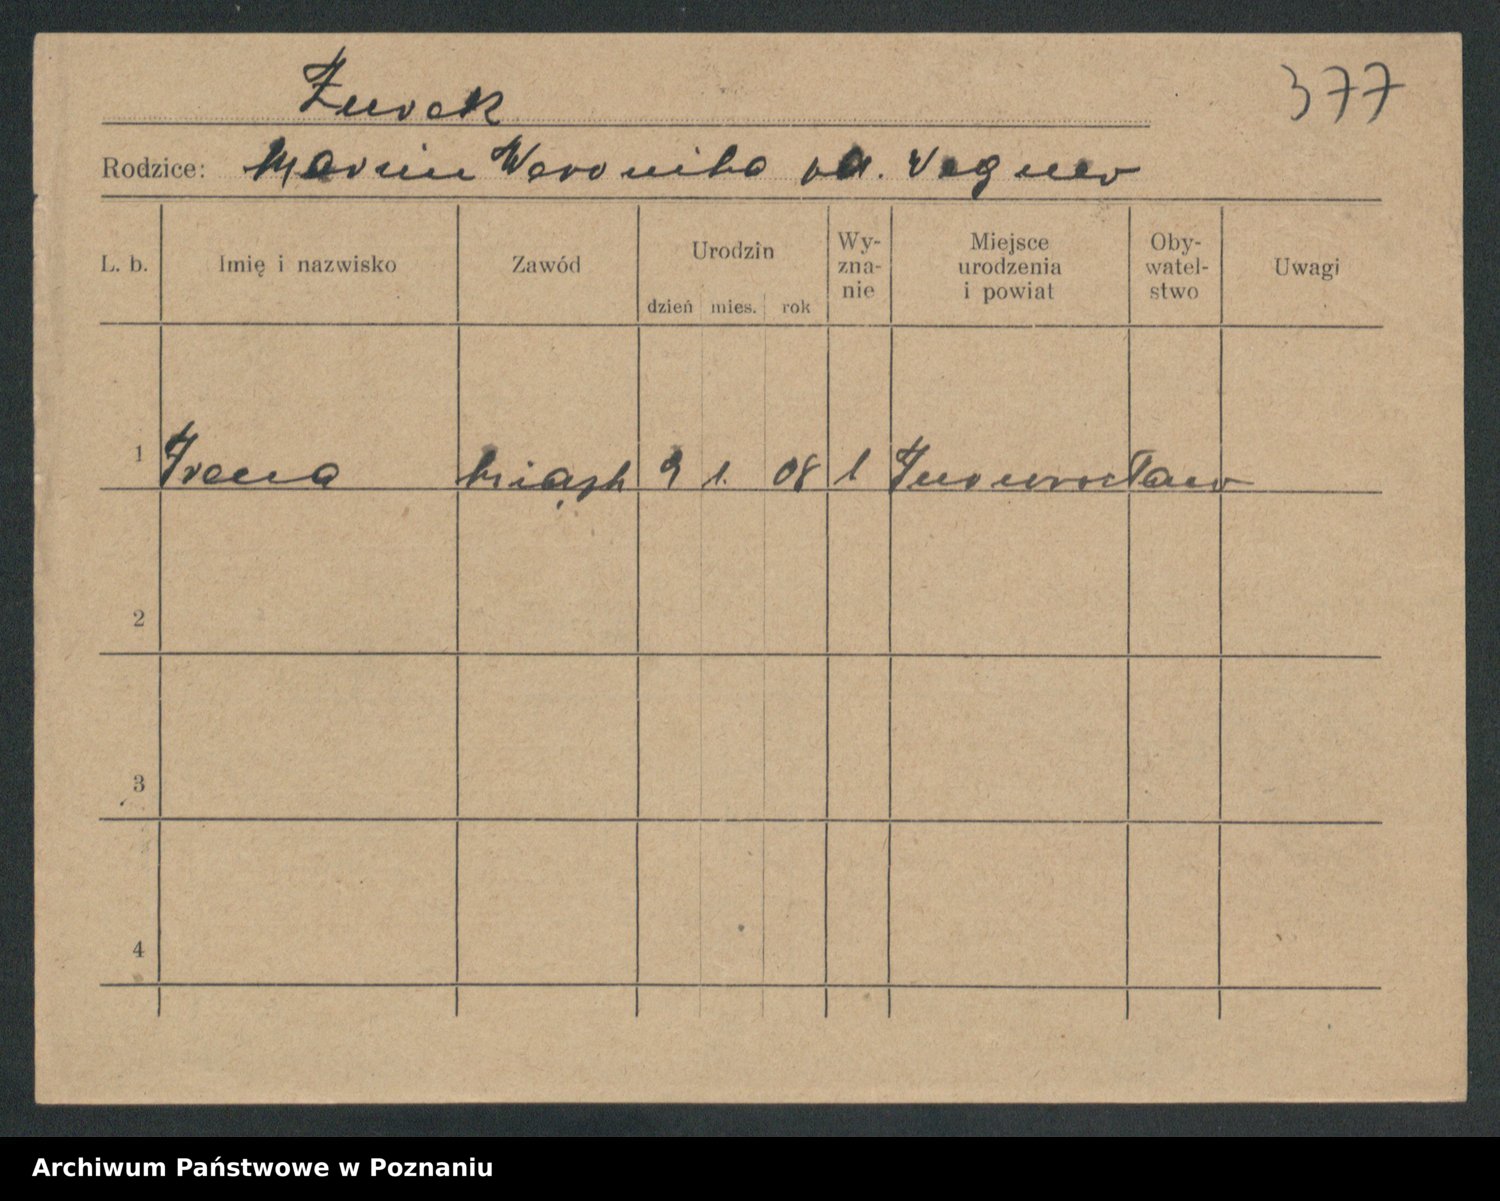 Żurek
377
Rodzice: Marcin Weronika Wegner
L. b. Imię i nazwisko Zawód Urodzin dzień mies. rok Wy-zna-nie Miejsce urodzenia i powiat Oby-watel-stwo Uwagi
1 Irena 9 1. 08 Inowrocław
2
3
4
Archiwum Państwowe w Poznaniu